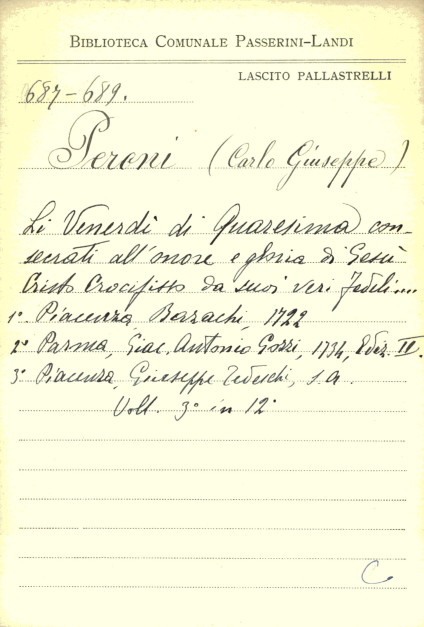 BIBLIOTECA COMUNALE PASSERINI-LANDI
LASCITO PALLASTRELLI
687-689.
Peroni (Carlo Giuseppe)
Li Venerdì di Quaresima con-
secrati all'onore e gloria di Gesù
Cristo Crocifisso da suoi veri fedeli...
1º. Piacenza, Bazachi, 1722
2º Parma, Giac. Antonio Gozzi, 1734, Ediz. II.
3º Piacenza, Giuseppe Tedeschi, s.a.
Voll. 3º in 12º
C